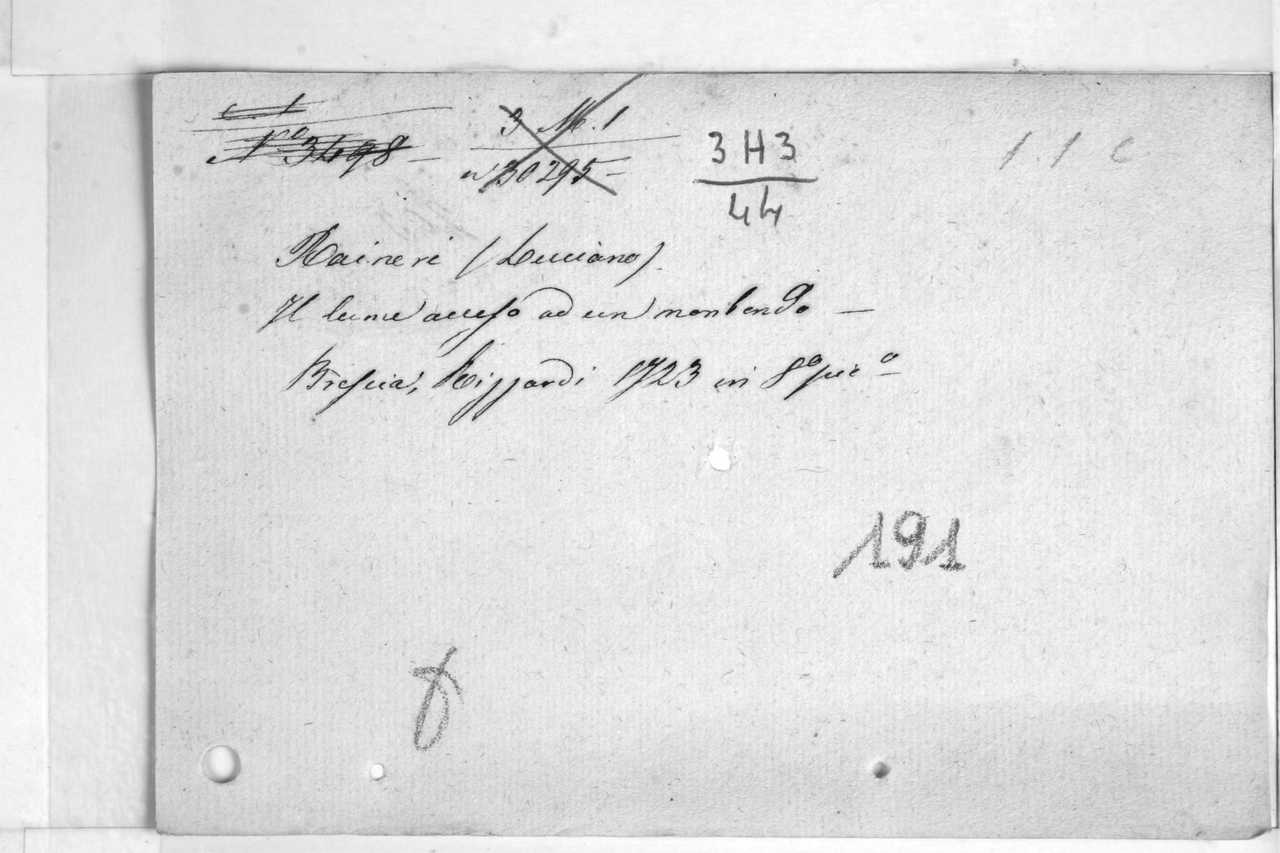 N.º 3498 –
3 M. 1
nº 30295 –
3 H 3
44
1 1 C
Raineri (Luciano)
Il lume acceso ad un moribondo –
Brescia, Rizzardi 1723 in 8º picº
191